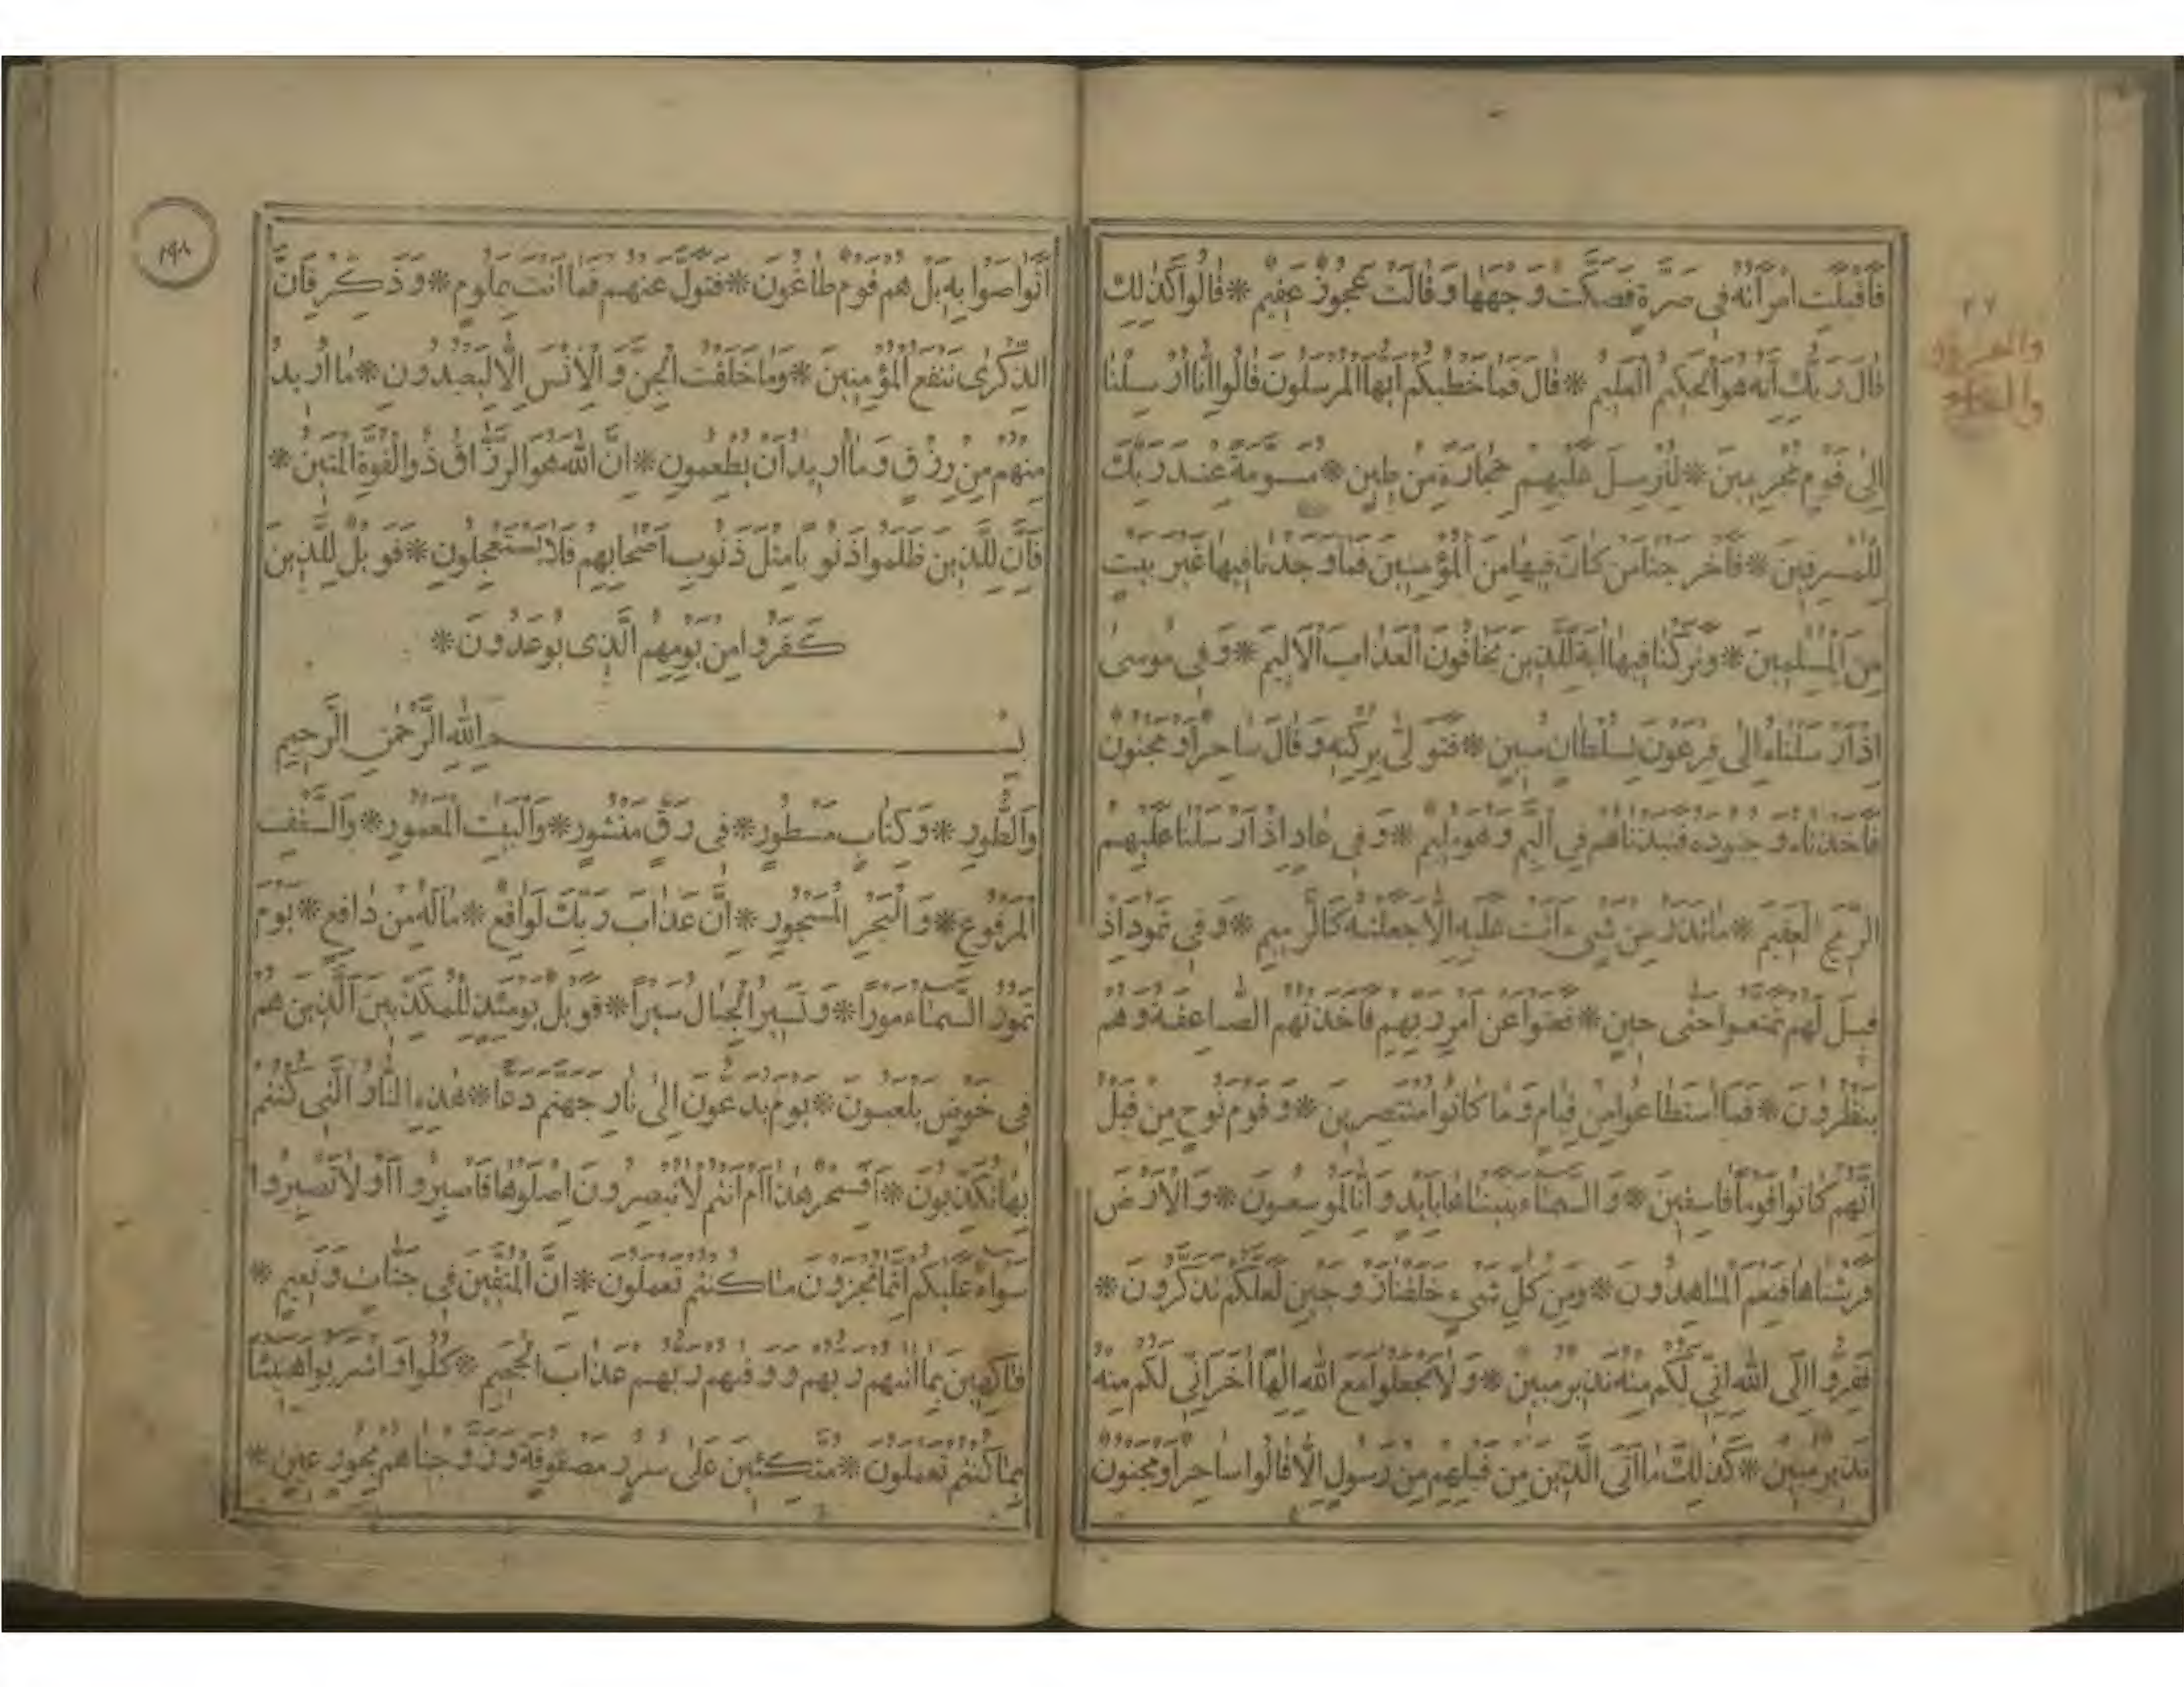 فَأَقْبَلَتِ امْرَأَتُهُ فِي صَرَّةٍ فَصَكَّتْ وَجْهَهَا وَقَالَتْ عَجُوزٌ عَقِيمٌ * قَالُوا كَذٰلِكِ
قَالَ رَبُّكِ إِنَّهُ هُوَ الْحَكِيمُ الْعَلِيمُ * قَالَ فَمَا خَطْبُكُمْ أَيُّهَا الْمُرْسَلُونَ قَالُوا إِنَّا أُرْسِلْنَا
إِلىٰ قَوْمٍ مُجْرِمِينَ * لِنُرْسِلَ عَلَيْهِمْ حِجَارَةً مِنْ طِينٍ * مُسَوَّمَةً عِنْدَ رَبِّكَ
لِلْمُسْرِفِينَ * فَأَخْرَجْنَا مَنْ كَانَ فِيهَا مِنَ الْمُؤْمِنِينَ فَمَا وَجَدْنَا فِيهَا غَيْرَ بَيْتٍ
مِنَ الْمُسْلِمِينَ * وَتَرَكْنَا فِيهَا آيَةً لِلَّذِينَ يَخَافُونَ الْعَذَابَ الْأَلِيمَ * وَفِي مُوسىٰ
إِذْ أَرْسَلْنَاهُ إِلىٰ فِرْعَوْنَ بِسُلْطَانٍ مُبِينٍ * فَتَوَلىّٰ بِرُكْنِهِ وَقَالَ سَاحِرٌ أَوْ مَجْنُونٌ
فَأَخَذْنَاهُ وَجُنُودَهُ فَنَبَذْنَاهُمْ فِي الْيَمِّ وَهُوَ مُلِيمٌ * وَفِي عَادٍ إِذْ أَرْسَلْنَا عَلَيْهِمُ
الرِّيحَ الْعَقِيمَ * مَا تَذَرُ مِنْ شَيْءٍ أَتَتْ عَلَيْهِ إِلَّا جَعَلَتْهُ كَالرَّمِيمِ * وَفِي ثَمُودَ إِذْ
قِيلَ لَهُمْ تَمَتَّعُوا حَتّىٰ حِينٍ * فَعَتَوْا عَنْ أَمْرِ رَبِّهِمْ فَأَخَذَتْهُمُ الصَّاعِقَةُ وَهُمْ
يَنْظُرُونَ * فَمَا اسْتَطَاعُوا مِنْ قِيَامٍ وَمَا كَانُوا مُنْتَصِرِينَ * وَقَوْمَ نُوحٍ مِنْ قَبْلُ
إِنَّهُمْ كَانُوا قَوْمًا فَاسِقِينَ * وَالسَّمَاءَ بَنَيْنَاهَا بِأَيْدٍ وَإِنَّا لَمُوسِعُونَ * وَالْأَرْضَ
فَرَشْنَاهَا فَنِعْمَ الْمَاهِدُونَ * وَمِنْ كُلِّ شَيْءٍ خَلَقْنَا زَوْجَيْنِ لَعَلَّكُمْ تَذَكَّرُونَ *
فَفِرُّوا إِلَى اللّٰهِ إِنِّي لَكُمْ مِنْهُ نَذِيرٌ مُبِينٌ * وَلَا تَجْعَلُوا مَعَ اللّٰهِ إِلٰهًا آخَرَ إِنِّي لَكُمْ مِنْهُ
نَذِيرٌ مُبِينٌ * كَذٰلِكَ مَا أَتَى الَّذِينَ مِنْ قَبْلِهِمْ مِنْ رَسُولٍ إِلَّا قَالُوا سَاحِرٌ أَوْ مَجْنُونٌ
١٩٨
أَتَوَاصَوْا بِهِ بَلْ هُمْ قَوْمٌ طَاغُونَ * فَتَوَلَّ عَنْهُمْ فَمَا أَنْتَ بِمَلُومٍ * وَذَكِّرْ فَإِنَّ
الذِّكْرٰى تَنْفَعُ الْمُؤْمِنِينَ * وَمَا خَلَقْتُ الْجِنَّ وَالْإِنْسَ إِلَّا لِيَعْبُدُونِ * مَا أُرِيدُ
مِنْهُمْ مِنْ رِزْقٍ وَمَا أُرِيدُ أَنْ يُطْعِمُونِ * إِنَّ اللّٰهَ هُوَ الرَّزَّاقُ ذُو الْقُوَّةِ الْمَتِينُ *
فَإِنَّ لِلَّذِينَ ظَلَمُوا ذَنُوبًا مِثْلَ ذَنُوبِ أَصْحَابِهِمْ فَلَا يَسْتَعْجِلُونِ * فَوَيْلٌ لِلَّذِينَ
كَفَرُوا مِنْ يَوْمِهِمُ الَّذِي يُوعَدُونَ *
بِسْمِ اللّٰهِ الرَّحْمٰنِ الرَّحِيمِ
وَالطُّورِ * وَكِتَابٍ مَسْطُورٍ * فِي رَقٍّ مَنْشُورٍ * وَالْبَيْتِ الْمَعْمُورِ * وَالسَّقْفِ
الْمَرْفُوعِ * وَالْبَحْرِ الْمَسْجُورِ * إِنَّ عَذَابَ رَبِّكَ لَوَاقِعٌ * مَا لَهُ مِنْ دَافِعٍ * يَوْمَ
تَمُورُ السَّمَاءُ مَوْرًا * وَتَسِيرُ الْجِبَالُ سَيْرًا * فَوَيْلٌ يَوْمَئِذٍ لِلْمُكَذِّبِينَ الَّذِينَ هُمْ
فِي خَوْضٍ يَلْعَبُونَ * يَوْمَ يُدَعُّونَ إِلىٰ نَارِ جَهَنَّمَ دَعًّا * هٰذِهِ النَّارُ الَّتِي كُنْتُمْ
بِهَا تُكَذِّبُونَ * أَفَسِحْرٌ هٰذَا أَمْ أَنْتُمْ لَا تُبْصِرُونَ اصْلَوْهَا فَاصْبِرُوا أَوْ لَا تَصْبِرُوا
سَوَاءٌ عَلَيْكُمْ إِنَّمَا تُجْزَوْنَ مَا كُنْتُمْ تَعْمَلُونَ * إِنَّ الْمُتَّقِينَ فِي جَنَّاتٍ وَنَعِيمٍ *
فَاكِهِينَ بِمَا آتٰيهُمْ رَبُّهُمْ وَوَقٰيهُمْ رَبُّهُمْ عَذَابَ الْجَحِيمِ * كُلُوا وَاشْرَبُوا هَنِيئًا
بِمَا كُنْتُمْ تَعْمَلُونَ * مُتَّكِئِينَ عَلىٰ سُرُرٍ مَصْفُوفَةٍ وَزَوَّجْنَاهُمْ بِحُورٍ عِينٍ *